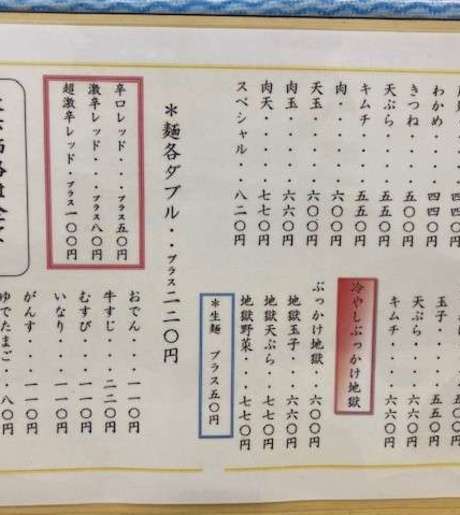 わかめ・・四四〇円
きつね・・・五〇〇円
天ぷら・・・五五〇円
キムチ・・・五五〇円
肉・・・・・六〇〇円
天玉・・・・六六〇円
肉玉・・・・六六〇円
肉天・・・・七七〇円
スペシャル・・八二〇円
玉子・・・五五〇円
天ぷら・・・六六〇円
キムチ・・・六六〇円
冷やしぶっかけ地獄
ぶっかけ地獄・・六〇〇円
地獄玉子・・・六六〇円
地獄天ぷら・・七七〇円
地獄野菜・・・七七〇円
＊生麺 プラス五〇円
＊麺各ダブル・・プラス二二〇円
辛口レッド・・・プラス五〇円
激辛レッド・・・プラス八〇円
超激辛レッド・プラス一〇〇円
おでん・・・一一〇円
牛すじ・・・二二〇円
むすび・・・一一〇円
いなり・・・一一〇円
がんす・・・一一〇円
ゆでたまご・・八〇円